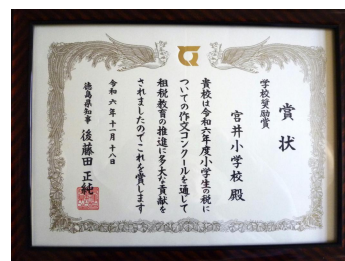 賞状
学校奨励賞
宮井小学校 殿
貴校は令和六年度小学生の税に
ついての作文コンクールを通じて
租税教育の推進に多大な貢献を
されましたのでこれを賞します
令和六年十一月十八日
徳島県知事 後藤田正純